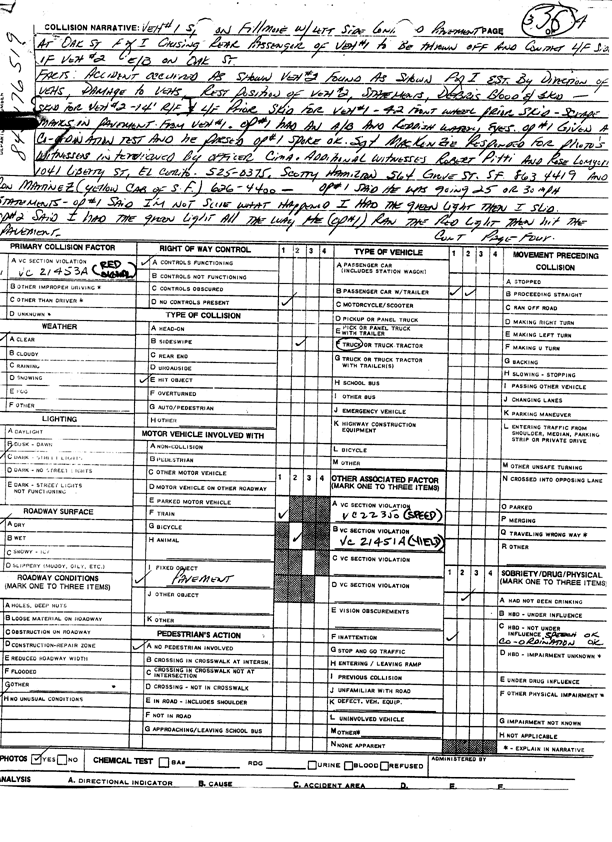 COLLISION NARRATIVE: VEH#1 S/ ON FILLMORE W/ LEFT SIDE O PAVEMENT PAGE 3
AT OAK ST CAUSING REAR PASSENGER OF VEH#1 TO BE THROWN OFF AND CONTACT L/F
IF VEH#2 E/B ON OAK ST.
FACTS: ACCIDENT OCCURRED AS SHOWN VEH#2 FOUND AS SHOWN PG I EST. BY DIRECTION OF
VEHS, DAMAGE TO VEHS, REST POSITION OF VEH#2, STATEMENTS, DEBRIS BLOOD & SKID —
SKID FOR VEH#2 - 14' R/F & L/F PRIOR SKID FOR VEH#1 - 42 FRONT WHEEL PRIOR SKID - SCRAPE
MARKS IN PAVEMENT FROM VEH#1. OP#1 HAD AN A/B AND REDDISH WATERY EYES. OP#1 GIVEN A
CO-ORDINATION TEST AND HE PASSED OP#1 SPOKE OK. SGT MACKENZIE RESPONDED FOR PHOTOS
WITNESSES INTERVIEWED BY OFFICER CIMA. ADDITIONAL WITNESSES ROBERT PITTI AND ROSE
1041 LIBERTY ST, EL CERITO. 525-0375, SCOTTY HAMILTON 564 GROVE ST. SF 863 4419 AND
ON MARTINEZ (YELLOW CAB OF S.F.) 626-4400 — OP#1 SAID HE WAS GOING 25 OR 30 MPH
STATEMENTS - OP#1 SAID I'M NOT SURE WHAT HAPPENED I HAD THE GREEN LIGHT THEN I SLID.
OP#2 SAID I HAD THE GREEN LIGHT ALL THE WAY HE (OP#1) RAN THE RED LIGHT THEN HIT THE
PAVEMENT. CONT PAGE FOUR.
PRIMARY COLLISION FACTOR
A VC SECTION VIOLATION
VC 21453A (RED SIGNAL)
B OTHER IMPROPER DRIVING *
C OTHER THAN DRIVER *
D UNKNOWN *
WEATHER
A CLEAR
B CLOUDY
C RAINING
D SNOWING
E FOG
F OTHER
LIGHTING
A DAYLIGHT
B DUSK - DAWN
C DARK - STREET LIGHTS
D DARK - NO STREET LIGHTS
E DARK - STREET LIGHTS
NOT FUNCTIONING
ROADWAY SURFACE
A DRY
B WET
C SNOWY - ICY
D SLIPPERY (MUDDY, OILY, ETC.)
ROADWAY CONDITIONS
(MARK ONE TO THREE ITEMS)
A HOLES, DEEP RUTS
B LOOSE MATERIAL ON ROADWAY
C OBSTRUCTION ON ROADWAY
D CONSTRUCTION-REPAIR ZONE
E REDUCED ROADWAY WIDTH
F FLOODED
G OTHER *
H NO UNUSUAL CONDITIONS
RIGHT OF WAY CONTROL 1 2 3 4
A CONTROLS FUNCTIONING
B CONTROLS NOT FUNCTIONING
C CONTROLS OBSCURED
D NO CONTROLS PRESENT
TYPE OF COLLISION
A HEAD-ON
B SIDESWIPE
C REAR END
D BROADSIDE
E HIT OBJECT
F OVERTURNED
G AUTO/PEDESTRIAN
H OTHER
MOTOR VEHICLE INVOLVED WITH
A NON-COLLISION
B PEDESTRIAN
C OTHER MOTOR VEHICLE
D MOTOR VEHICLE ON OTHER ROADWAY
E PARKED MOTOR VEHICLE
F TRAIN
G BICYCLE
H ANIMAL
I FIXED OBJECT
PAVEMENT
J OTHER OBJECT
K OTHER
PEDESTRIAN'S ACTION
A NO PEDESTRIAN INVOLVED
B CROSSING IN CROSSWALK AT INTERSN.
C CROSSING IN CROSSWALK NOT AT
INTERSECTION
D CROSSING - NOT IN CROSSWALK
E IN ROAD - INCLUDES SHOULDER
F NOT IN ROAD
G APPROACHING/LEAVING SCHOOL BUS
TYPE OF VEHICLE
A PASSENGER CAR
(INCLUDES STATION WAGON)
B PASSENGER CAR W/TRAILER
C MOTORCYCLE/SCOOTER
D PICKUP OR PANEL TRUCK
E PICK OR PANEL TRUCK
WITH TRAILER
F TRUCK OR TRUCK TRACTOR
G TRUCK OR TRUCK TRACTOR
WITH TRAILER(S)
H SCHOOL BUS
I OTHER BUS
J EMERGENCY VEHICLE
K HIGHWAY CONSTRUCTION
EQUIPMENT
L BICYCLE
M OTHER
1 2 3 4 OTHER ASSOCIATED FACTOR
(MARK ONE TO THREE ITEMS)
A VC SECTION VIOLATION
VC 22350 (SPEED)
B VC SECTION VIOLATION
VC 21451A (YIELD)
C VC SECTION VIOLATION
D VC SECTION VIOLATION
E VISION OBSCUREMENTS
F INATTENTION
G STOP AND GO TRAFFIC
H ENTERING / LEAVING RAMP
I PREVIOUS COLLISION
J UNFAMILIAR WITH ROAD
K DEFECT. VEH. EQUIP.
L UNINVOLVED VEHICLE
M OTHER*
N NONE APPARENT
1 2 3 4 MOVEMENT PRECEDING
COLLISION
A STOPPED
B PROCEEDING STRAIGHT
C RAN OFF ROAD
D MAKING RIGHT TURN
E MAKING LEFT TURN
F MAKING U TURN
G BACKING
H SLOWING - STOPPING
I PASSING OTHER VEHICLE
J CHANGING LANES
K PARKING MANEUVER
L ENTERING TRAFFIC FROM
SHOULDER, MEDIAN, PARKING
STRIP OR PRIVATE DRIVE
M OTHER UNSAFE TURNING
N CROSSED INTO OPPOSING LANE
O PARKED
P MERGING
Q TRAVELING WRONG WAY *
R OTHER
1 2 3 4 SOBRIETY/DRUG/PHYSICAL
(MARK ONE TO THREE ITEMS)
A HAD NOT BEEN DRINKING
B HBD - UNDER INFLUENCE
C HBD - NOT UNDER
INFLUENCE SPEECH OK
CO-ORDINATION OK
D HBD - IMPAIRMENT UNKNOWN *
E UNDER DRUG INFLUENCE
F OTHER PHYSICAL IMPAIRMENT *
G IMPAIRMENT NOT KNOWN
H NOT APPLICABLE
* - EXPLAIN IN NARRATIVE
PHOTOS YES NO CHEMICAL TEST BA# RDG URINE BLOOD REFUSED ADMINISTERED BY
ANALYSIS A. DIRECTIONAL INDICATOR B. CAUSE C. ACCIDENT AREA D. E. F.